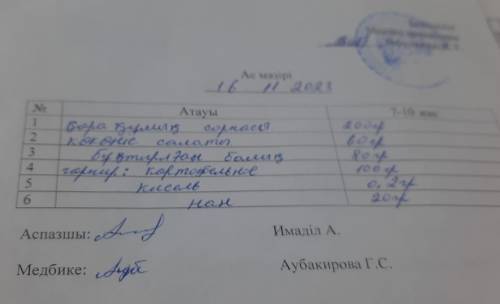 Ас мәзірі
16 11 2023
№ Атауы 7-10 жас
1 Қара бұлың сорпасы 200гр
2 көкөніс салаты 60гр
3 бұқтырылған балық 80гр
4 гарнир: картофельное 100гр
5 кисель 0,2гр
6 нан 20гр
Аспазшы: Имаділ А.
Медбике: Аубакирова Г.С.